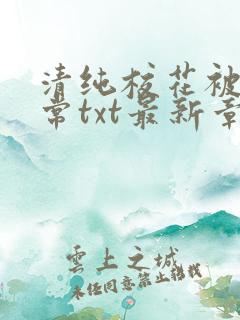 清纯校花被
常txt最新章
雲上之城
未经同意禁止转载